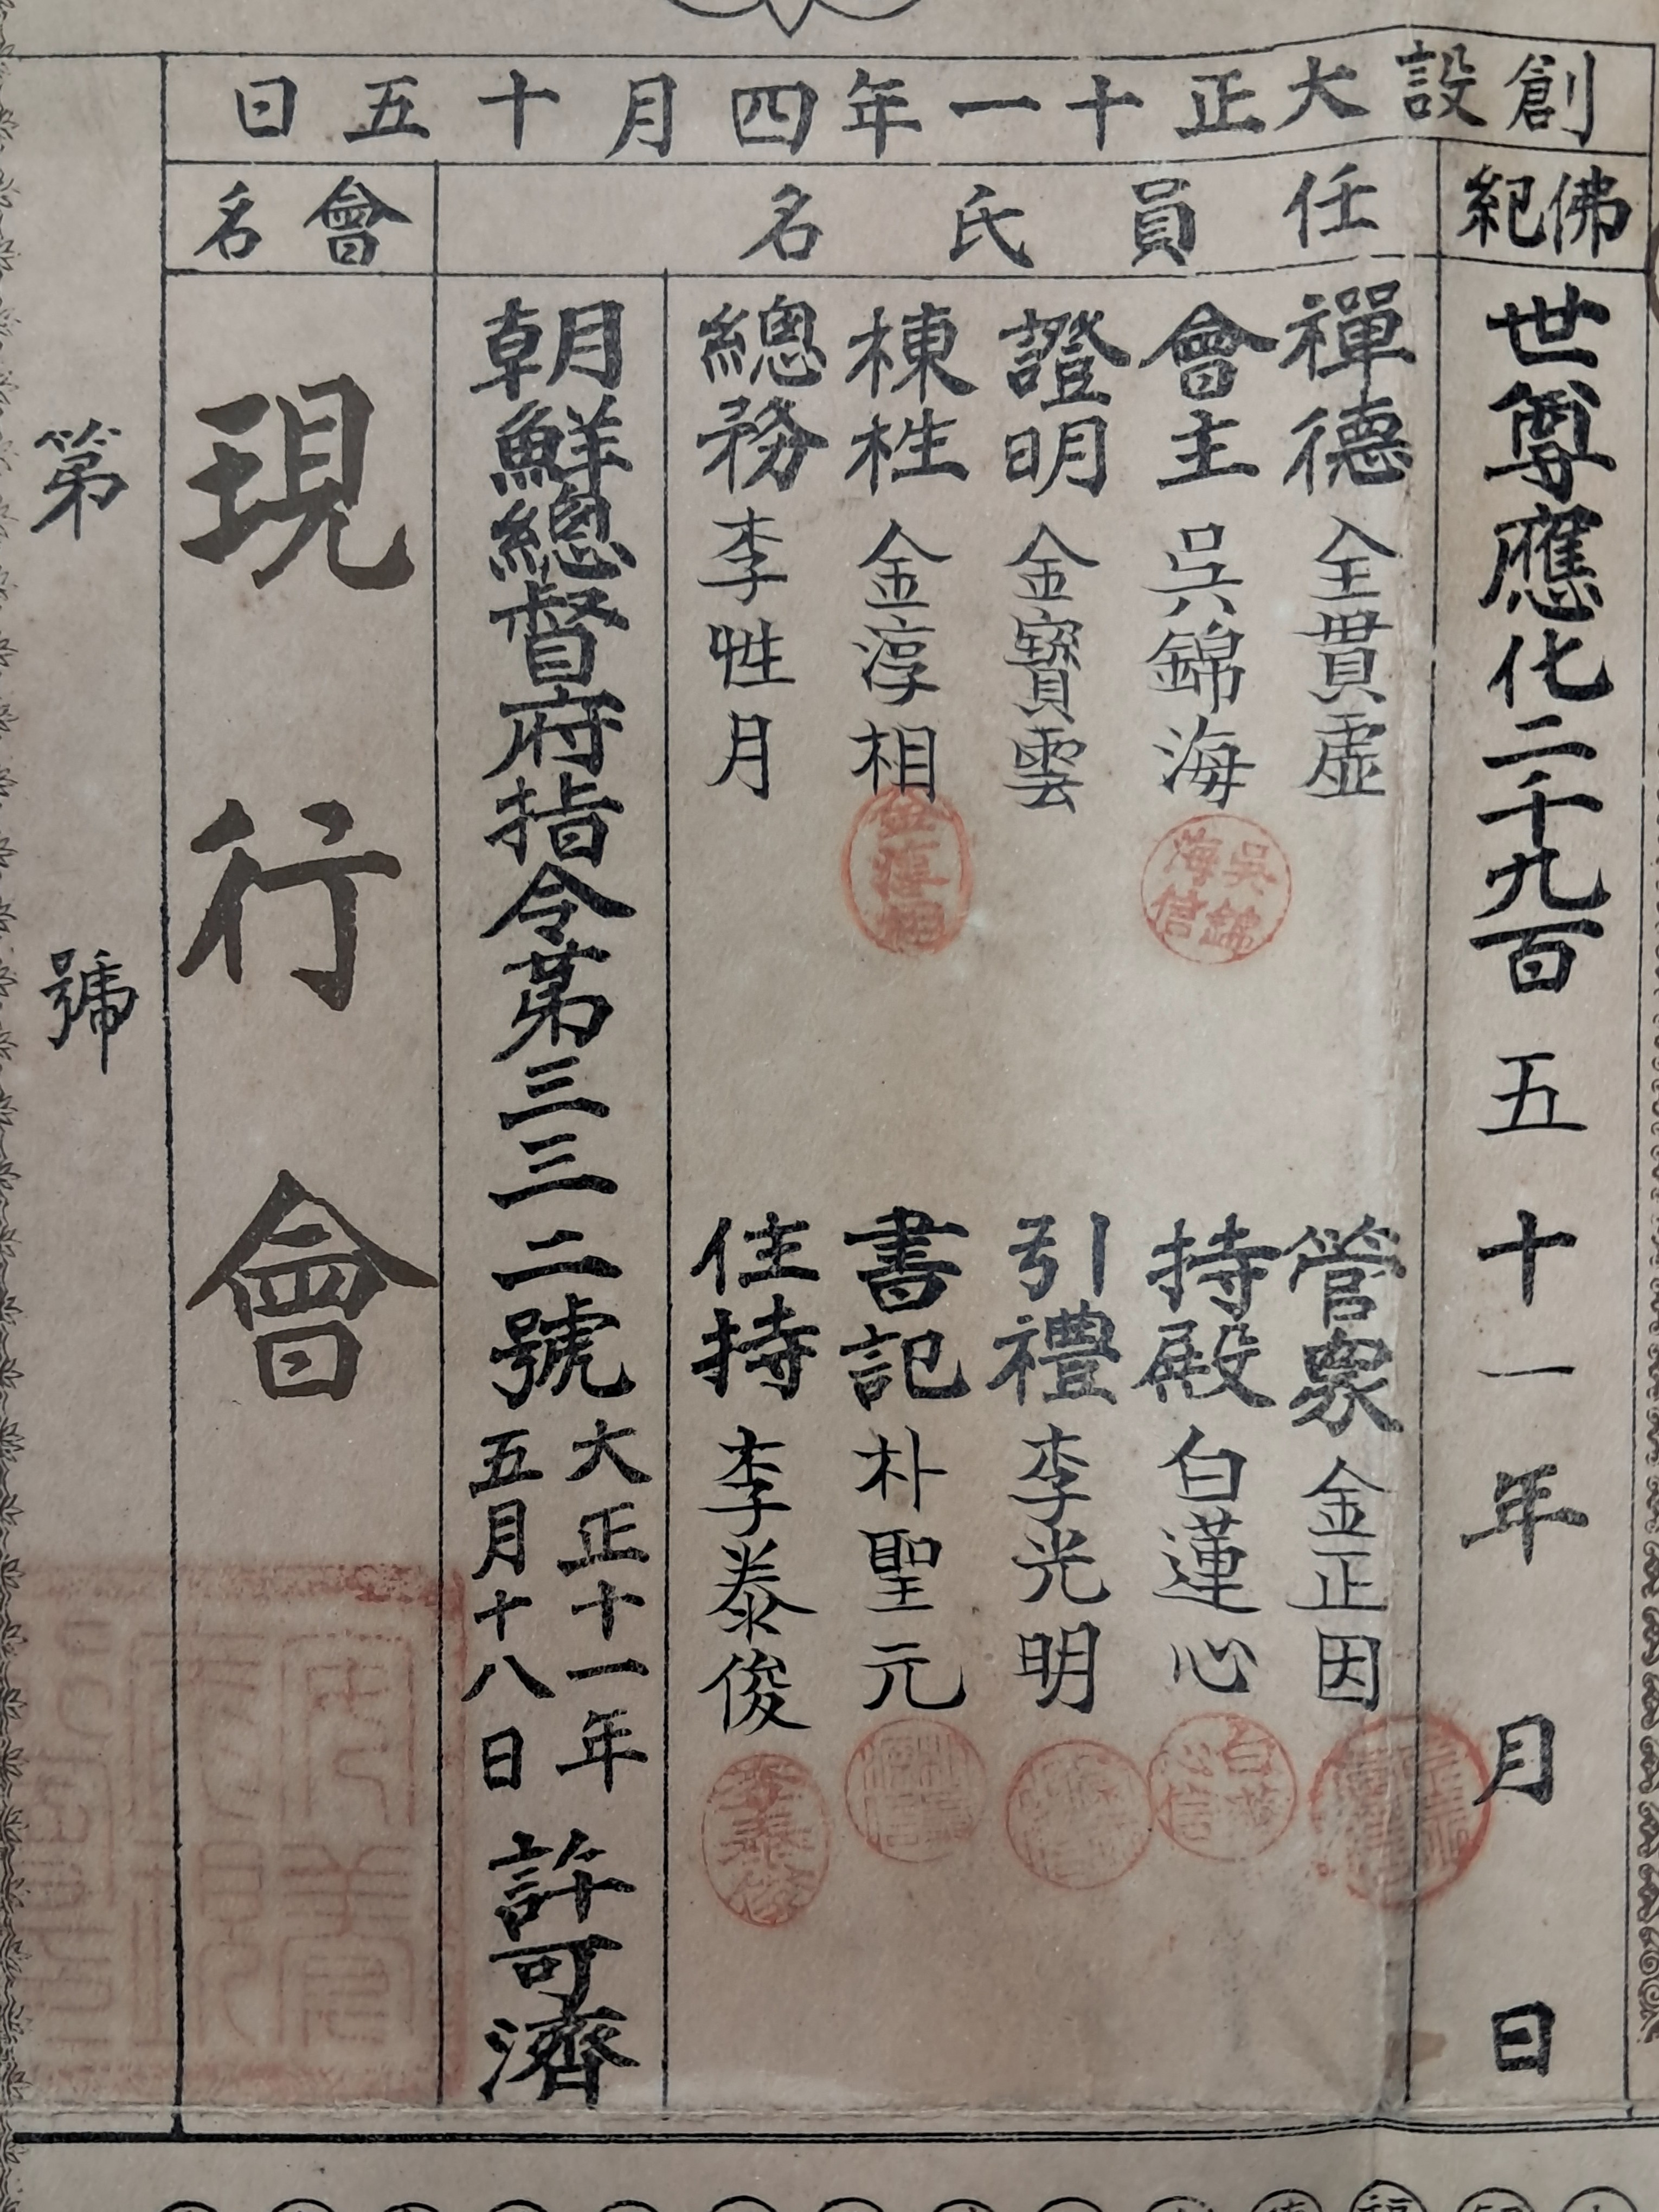 創設大正十一年四月十五日
佛紀
任員氏名
會名
世尊應化二千九百五十一年 月 日
禪德 全貫虛
會主 吳錦海
吳錦海信
證明 金寶雲
棟梁 金淳相
金淳相
總務 李性月
管衆 金正因
持殿 白蓮心
白蓮心信
引禮 李光明
書記 朴聖元
住持 李泰俊
李泰俊
朝鮮總督府指令第三三二號 大正十一年五月十八日 許可濟
現行會
第 號